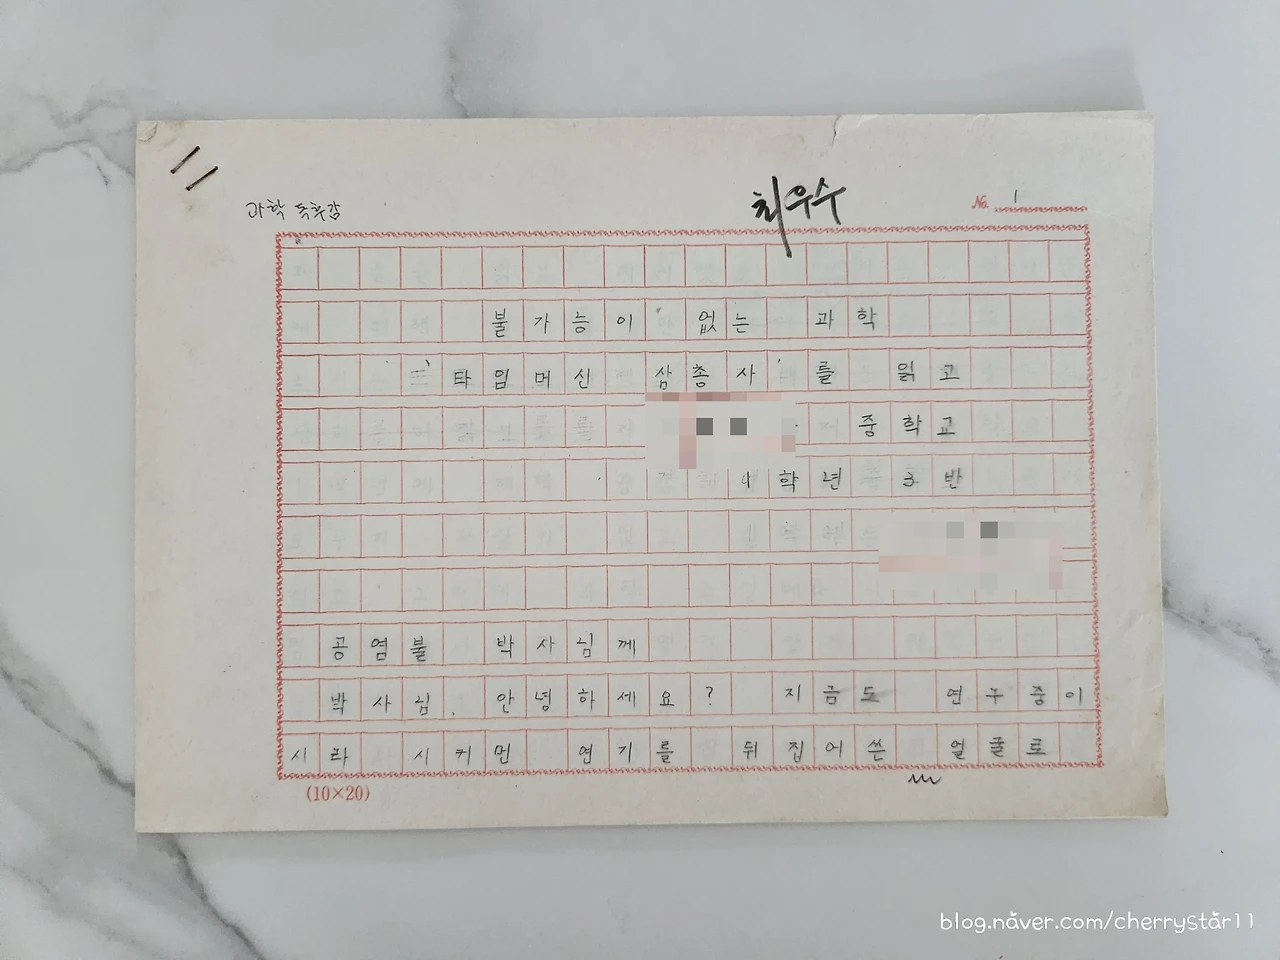 과학 독후감
최우수
No. 1
불가능이 없는 과학
'타임머신 삼총사'를 읽고
중학교
학년 3반
공염불 박사님께
박사님, 안녕하세요? 지금도 연구중이
시라 시커먼 연기를 뒤집어쓴 얼굴로
(10×20)
blog.naver.com/cherrystar11